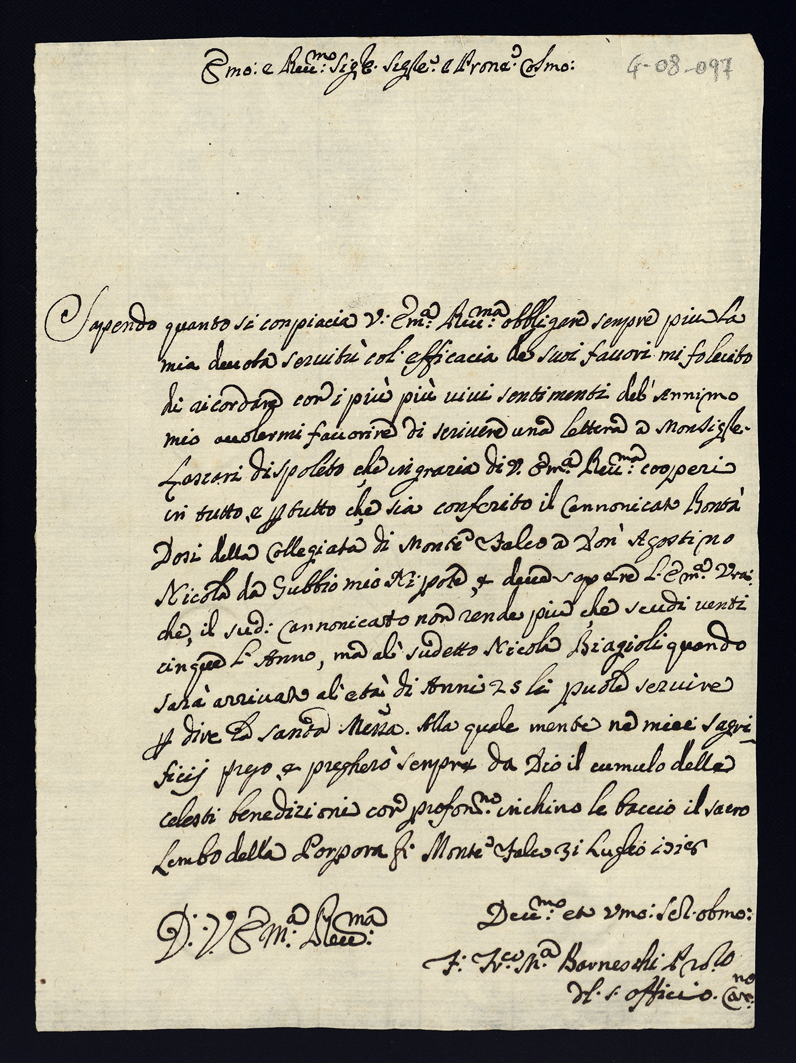 Emo: e Reu:mo Sigre. Sigre: e Prone: Colmo:
4-08-097
Sapendo quanto si conpiacia V: Em:a Reu:ma obbligare senpre piu La
mia deuota seruitù col' efficacia de suoi fauori mi fo lecito
di ricordare con i più più viui sentimenti del' Annimo
mio auolermi fauorire di scriuere una lettera a Monsigre.
Lascari di Spoleto che in grazia di V. Em:a Reu:ma cooperi
in tutto, e p tutto che sia conferito il Cannonicat Bontà
Dosi della Collegiata di Monte Falco a Don' Agostino
Nicola da Gubbio mio Nipote, e deue sapere L'Em:a Vra:
che, il sud: Cannonicato non rende più, che scudi venti
cinque L'Anno, ma al' sudetto Nicola Biagioli quando
sarà arriuato al' età di Anni 25 li puole seruire
p dire la santa Messa. Alla quale mente ne miei sagri
ficij prego, e pregherò senpre da Dio il cumulo delle
celesti benedizioni con profon:mo inchino le baccio il sacro
Lembo della Porpora Monte Falco 31 Luglio
D: V: Em:a Reu:ma
Deu:mo et Vmo: Ser. obmo:
F: Frco Ma: Borneschi
del S. Officio.